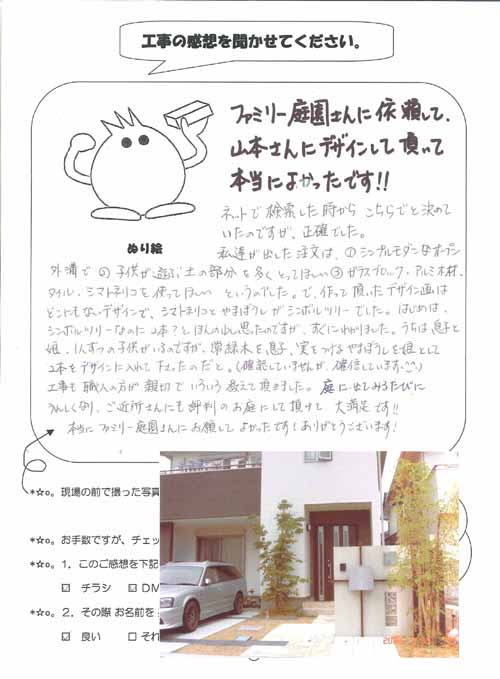 工事の感想を聞かせてください。
ファミリー庭園さんに依頼して、
山本さんにデザインして頂いて
本当によかったです!!
ぬり絵
ネットで検索した時から こちらでと決めて
いたのですが、正確でした。
私達が出した注文は、①シンプルモダンなオープン
外溝で ②子供が遊ぶ土の部分を多くとってほしい ③ガラスブロック・アルミ木材・
タイル・シマトネリコを使ってほしい というのでした。で、作って頂いたデザイン画は
どこにもないデザインで、シマトネリコとやまぼうしがシンボルツリーでした。はじめは、
シンボルツリーなのに2本?とほんのり思ったのですが、すぐにわかりました。うちは息子と
娘、1人ずつの子供がいるのですが、常緑木を息子、実をつけるやまぼうしを娘として
2本をデザインに入れて下さったのだと。(確認していませんが、確信しています)
工事も職人の方が親切でいろいろ教えて頂きました。庭に出てみるたびに
うれしくなり、ご近所さんにも評判のお庭にして頂けて 大満足です!!
本当にファミリー庭園さんにお願してよかったです!ありがとうございます!
*☆。現場の前で撮った写真
*☆。お手数ですが、チェッ
*☆。1，このご感想を下記
☑ チラシ ☑ DM
*☆。2，その際 お名前を
☑ 良い □ それ